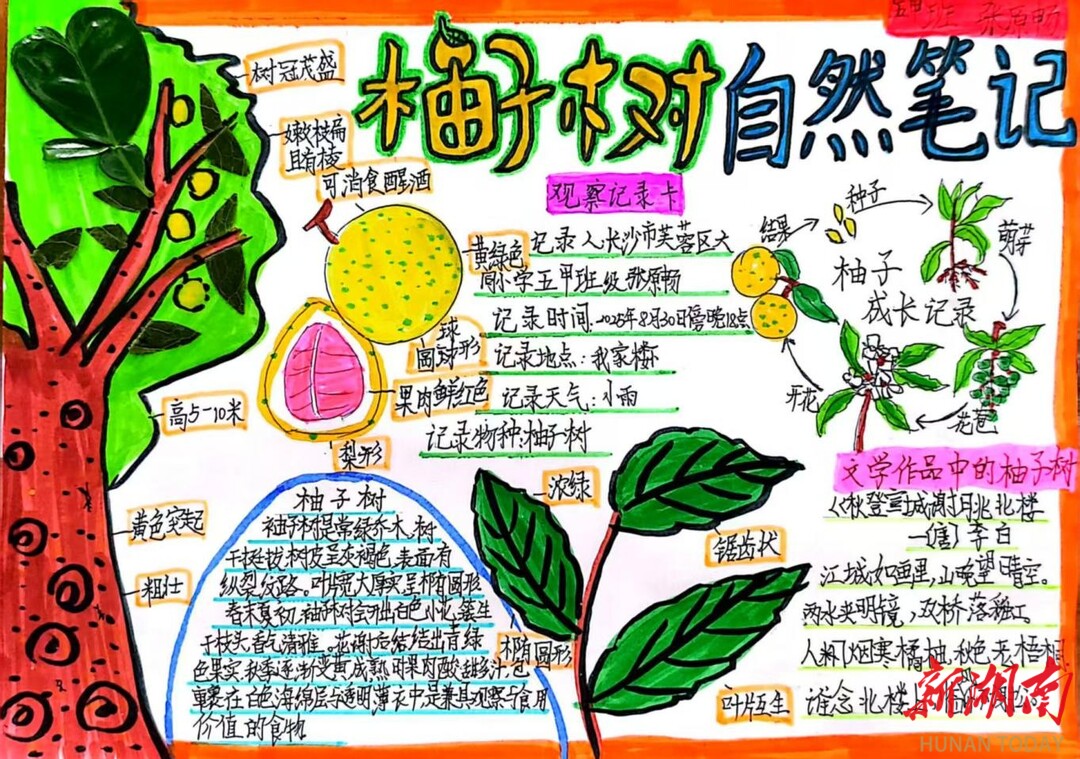 五甲班 张原畅
柚子树自然笔记
树冠茂盛
嫩枝扁
且有棱
可消食醒酒
观察记录卡
黄绿色
记录人:长沙市芙蓉区大
同小学五甲班级张原畅
记录时间:2025年8月30日傍晚18点
球
圆球形
记录地点:我家楼下
果肉鲜红色
记录天气:小雨
记录物种:柚子树
梨形
高5-10米
黄色突起
粗壮
结果
种子
萌芽
柚子
成长记录
花苞
开花
柚子树
柚子树是常绿乔木,树
干挺拔,树皮呈灰褐色,表面有
纵裂纹路。叶宽大厚实呈椭圆形
春末夏初,柚子树会开出白色小花,簇生
于枝头香气清雅。花谢后结出青绿
色果实,秋季逐渐变黄成熟,果肉酸甜多汁,包
裹在白色海绵层与透明薄衣中,是兼具观察与食用
价值的食物
浓绿
锯齿状
椭圆形
叶片互生
文学作品中的柚子树
《秋登宣城谢朓北楼
一(唐)李白
江城如画里,山晚望晴空。
两水夹明镜,双桥落彩虹。
人烟寒橘柚,秋色老梧桐
谁念北楼上
新湖南
HUNAN TODAY